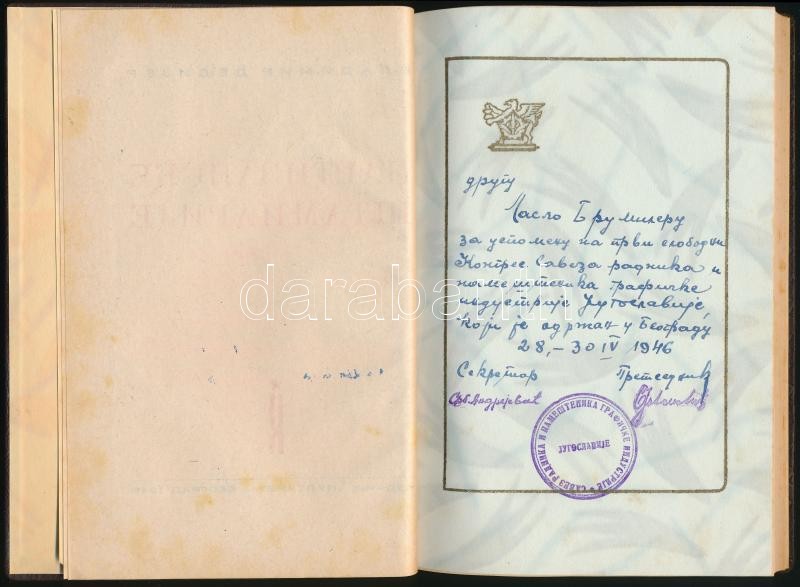 другу
Ласло Брумилеру
за успомену на први слободни
Конгрес Савеза радника и
намештеника графичке
индустрије Југославије,
који је одржан у Београду
28,-30 IV 1946
Секретар Претседник
САВЕЗ РАДНИКА И НАМЕШТЕНИКА ГРАФИЧКЕ ИНДУСТРИЈЕ
ЈУГОСЛАВИЈЕ
darabanth